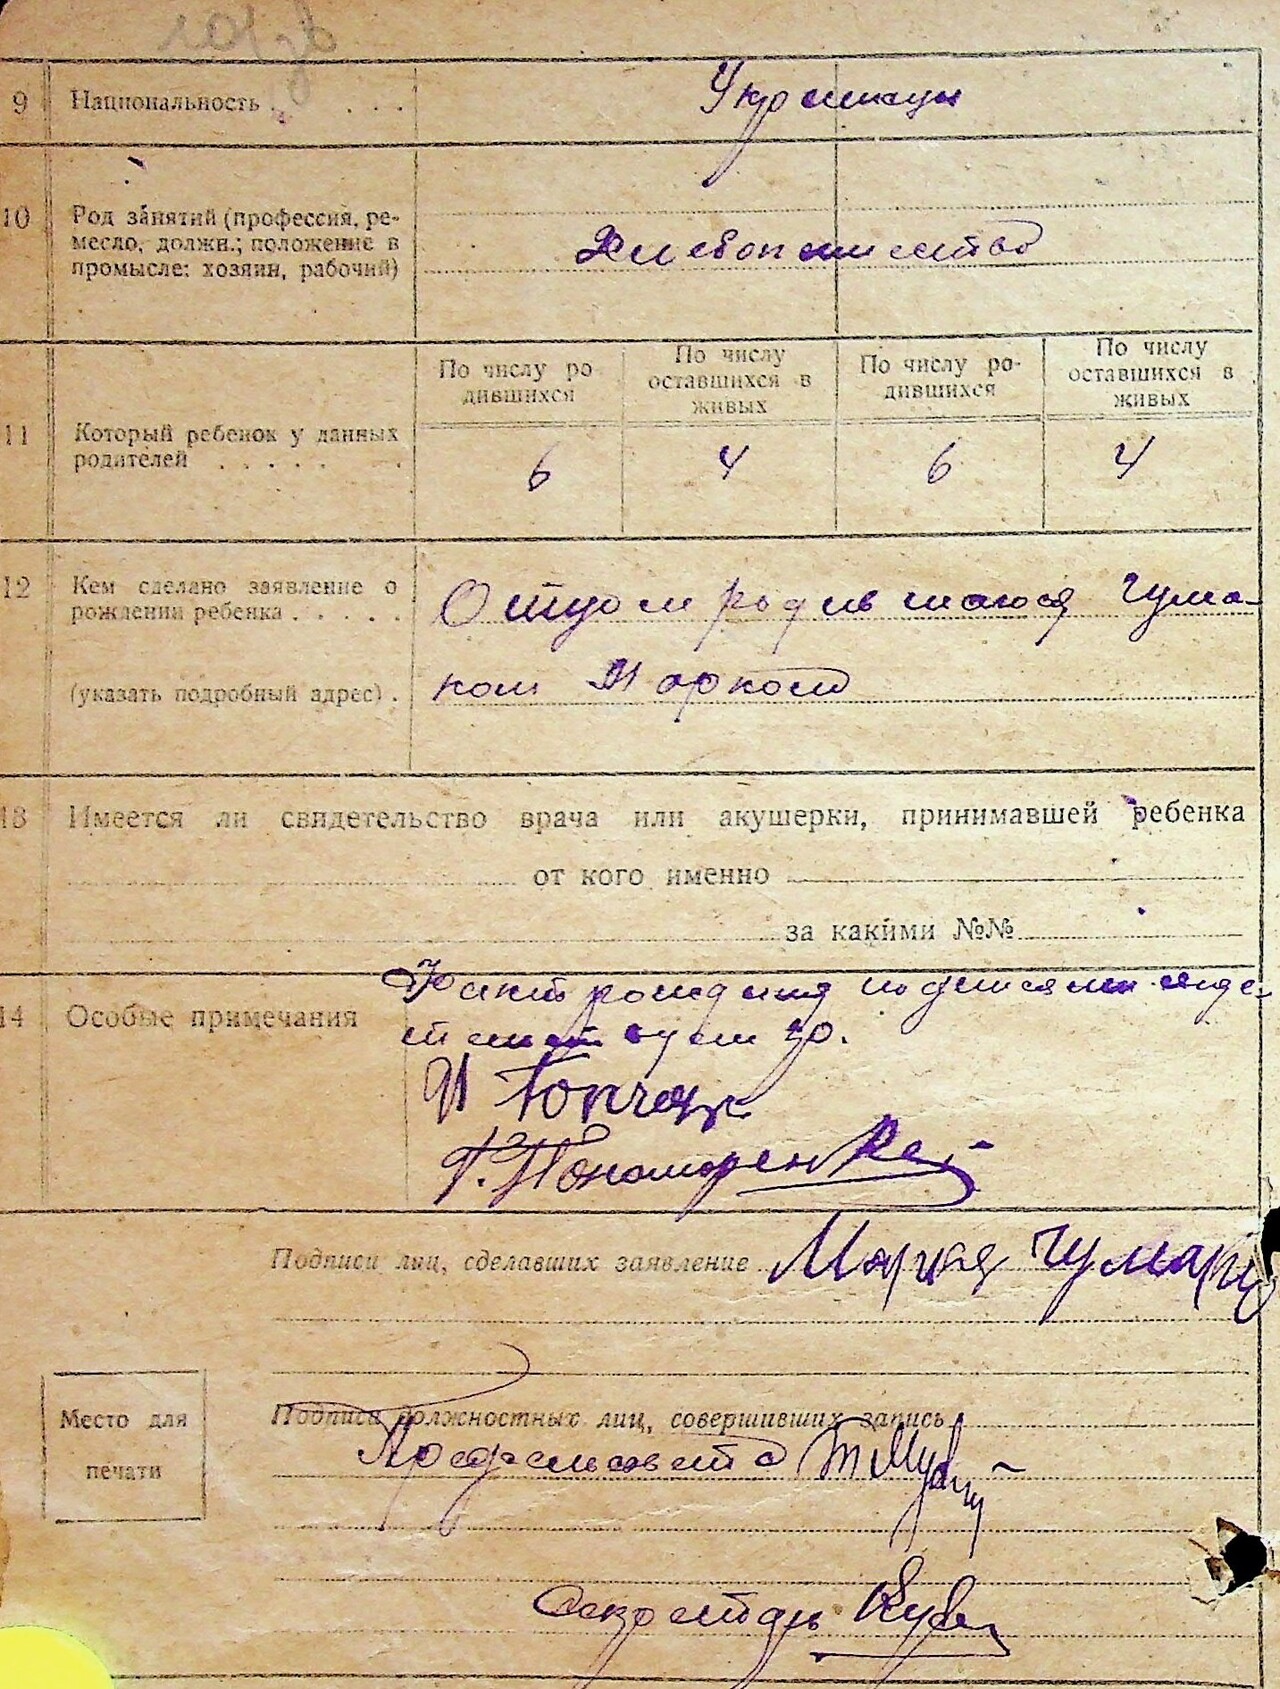 9 Национальность . . . . Украинцы
10 Род занятий (профессия, ре-
месло, должн.; положение в
промысле: хозяин, рабочий)
Хлебопашество
По числу ро
дившихся
По числу
оставшихся в
живых
По числу ро-
дившихся
По числу
оставшихся в
живых
11 Который ребенок у данных
родителей . . . . . .
6 4 6 4
12 Кем сделано заявление о
рождении ребенка . . . . .
(указать подробный адрес) .
Отцом родившагося Чума-
ком Марком
13 Имеется ли свидетельство врача или акушерки, принимавшей ребенка
от кого именно
за какими №№
14 Особые примечания
Факт рождения
Г. Пономаренко
Подписи лиц, сделавших заявление Марка Чумак
Место для
печати
Подписи должностных лиц, совершивших запись
Предсельсовета
Секретарь